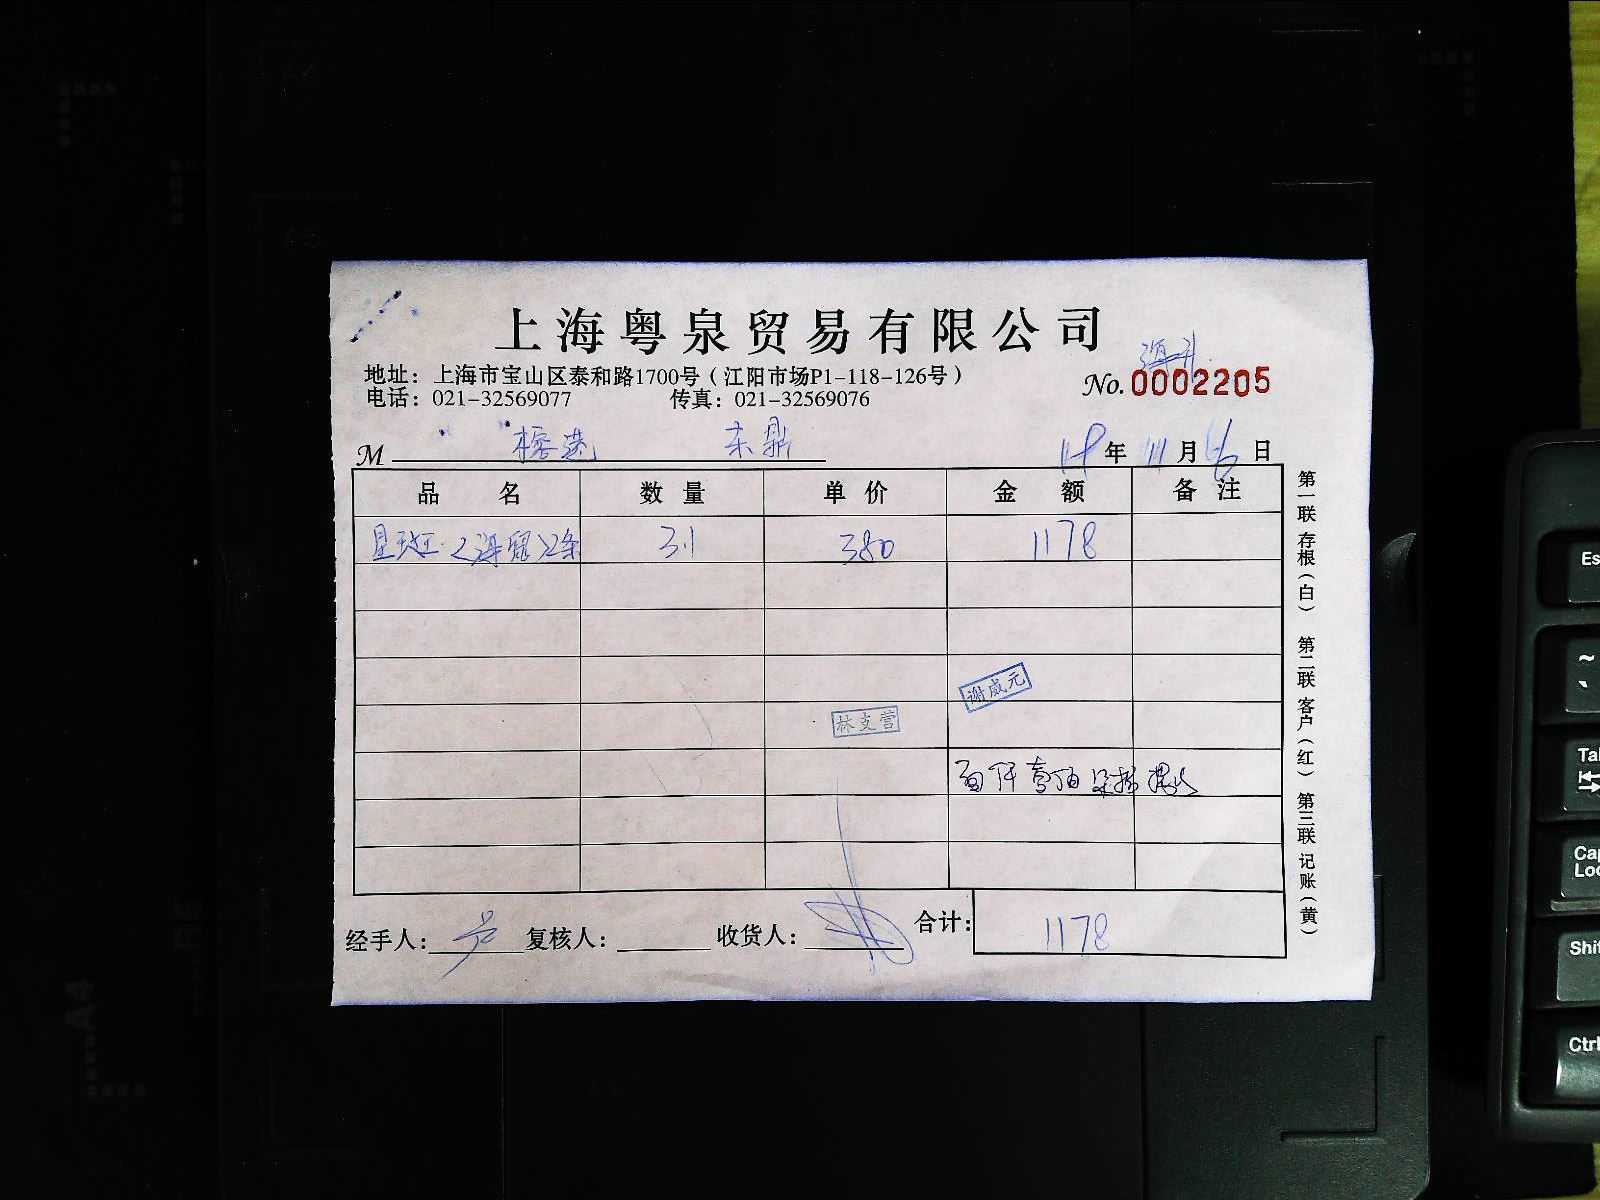 上海粤泉贸易有限公司
地址：上海市宝山区泰和路1700号（江阳市场P1-118-126号）
电话：021-32569077 传真：021-32569076
No. 0002205
M 东鼎 18年11月16日
品名 数量 单价 金额 备注
星斑 2条 3.1 380 1178
谢威元
林支营
经手人： 复核人： 收货人： 合计： 1178
第一联 存根（白） 第二联 客户（红） 第三联 记账（黄）
Es
~
`
Tab
Caps
Lock
Shift
Ctrl
A4
B5